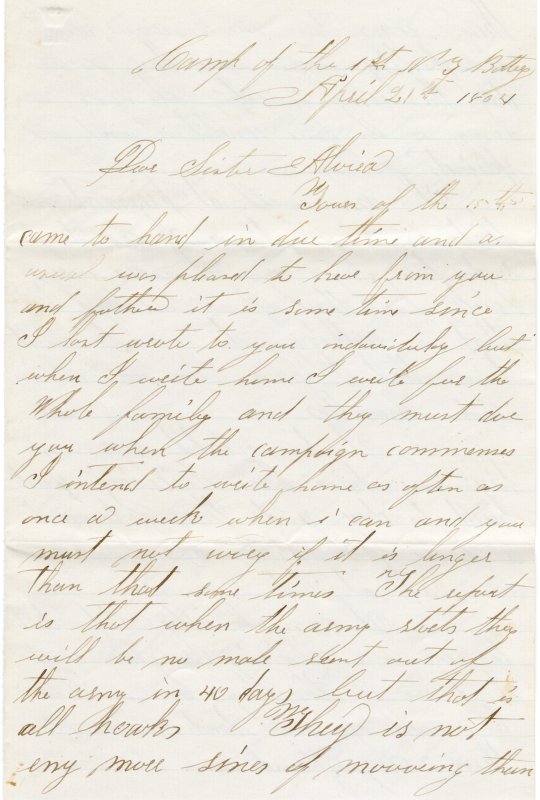 Camp of the 1st N Y Battery
April 21th 1864
Dear Sister Alviea
Youers of the 15th
came to hand in due time and as
usual was pleased to heare from you
and father it is some time since
I last wrote to you individuly but
when I write home I write for the
Whole family and they must due
you when the campaign commenses
I intend to write home as often as
once a week when i can and you
must not worey if it is longer
than that some times The report
is that when the army starts they
will be no male sent out of
the army in 40 days but that is
all hoaks They is not
eny more sines of mooving than